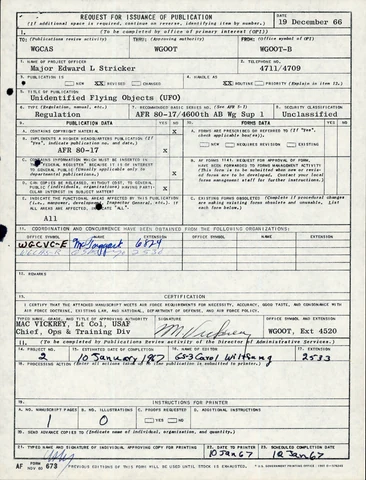 REQUEST FOR ISSUANCE OF PUBLICATION
(If additional space is required, continue on reverse, identifying item by number.)
DATE
19 December 66
I. (To be completed by office of primary interest (OPI))
TO: (Publications review activity)
THRU: (Approving authority)
FROM: (Office symbol of OPI)
WGCAS
WGOOT
WGOOT-B
1. NAME OF PROJECT OFFICER
2. TELEPHONE NO.
Major Edward L Stricker
4711/4709
3. PUBLICATION IS
NEW XX REVISED CHANGED
4. HANDLE AS
XX ROUTINE PRIORITY (Explain in item 12.)
5. TITLE OF PUBLICATION
Unidentified Flying Objects (UFO)
6. TYPE (Regulation, manual, etc.)
7. RECOMMENDED BASIC SERIES NO. (See AFR 5-1)
8. SECURITY CLASSIFICATION
Regulation
AFR 80-17/4600th AB Wg Sup 1
Unclassified
9. PUBLICATION DATA
YES NO
10. FORMS DATA
A. CONTAINS COPYRIGHT MATERIAL
X
A. FORMS ARE PRESCRIBED OR REFERRED TO (If "Yes", check applicable box(es).
NEW REQUIRES REVISION EXISTING
B. IMPLEMENTS A HIGHER HEADQUARTERS PUBLICATION (If "Yes", indicate publication no. and date.)
AFR 80-17
X
C. CONTAINS INFORMATION WHICH MUST BE INSERTED IN FEDERAL REGISTER BECAUSE IT IS OF INTEREST TO GENERAL PUBLIC (Usually applicable only to departmental publication.)
X
B. AF FORMS 1141, REQUEST FOR APPROVAL OF FORM, HAVE BEEN FURNISHED TO FORMS MANAGEMENT ACTIVITY (This form is to be submitted when new or revised forms are to be developed. Contact your local forms management staff for further instructions.)
D. CAN BE RELEASED, WITHOUT COST, TO GENERAL PUBLIC (Individuals, organizations) HAVING PARTICULAR INTEREST IN SUBJECT MATTER
X
E. INDICATE THE FUNCTIONAL AREAS AFFECTED BY THIS PUBLICATION
All
C. EXISTING FORMS OBSOLETED (Complete if procedures are making existing forms obsolete and unusable. List form below.)
11. COORDINATION AND CONCURRENCE HAVE BEEN OBTAINED FROM THE FOLLOWING ORGANIZATIONS:
OFFICE SYMBOL NAME EXTENSION OFFICE SYMBOL NAME EXTENSION
WGCVC-E 6824
12. REMARKS
13. CERTIFICATION
I CERTIFY THAT THE ATTACHED MANUSCRIPT MEETS AIR FORCE REQUIREMENTS FOR NECESSITY, ACCURACY, GOOD TASTE, AND CONFORMANCE WITH AIR FORCE DOCTRINE, EXISTING LAW, AND NATIONAL, DEPARTMENT OF DEFENSE, AND AIR FORCE POLICY.
TYPED NAME, GRADE, AND TITLE OF APPROVING AUTHORITY
SIGNATURE
OFFICE SYMBOL AND EXTENSION
MAC VICKREY, Lt Col, USAF
Chief, Ops & Training Div
WGOOT, Ext 4520
II. (To be completed by Publications review activity of the Director of Administrative Services.)
14. PROJECT NO.
15. ESTIMATED DATE OF COMPLETION
16. NAME OF EDITOR
17. EXTENSION
2
10 January 1967
GS-3 Carol
2583
18. PROCESSING ACTION
19. INSTRUCTIONS FOR PRINTER
A. NO. MANUSCRIPT PAGES
B. NO. ILLUSTRATIONS
C. PROOFS REQUESTED
D. ADDITIONAL INSTRUCTIONS
1
0
YES NO
20. SEND ADVANCE COPIES TO (Indicate name of individual, organization, and quantity).
21. TYPED NAME AND SIGNATURE OF INDIVIDUAL APPROVING COPY FOR PRINTING
22. DATE TO PRINTER
23. SCHEDULED COMPLETION DATE
10 Jan 67
12 Jan 67
AF FORM 673
PREVIOUS EDITIONS OF THIS FORM WILL BE USED UNTIL STOCK IS EXHAUSTED.